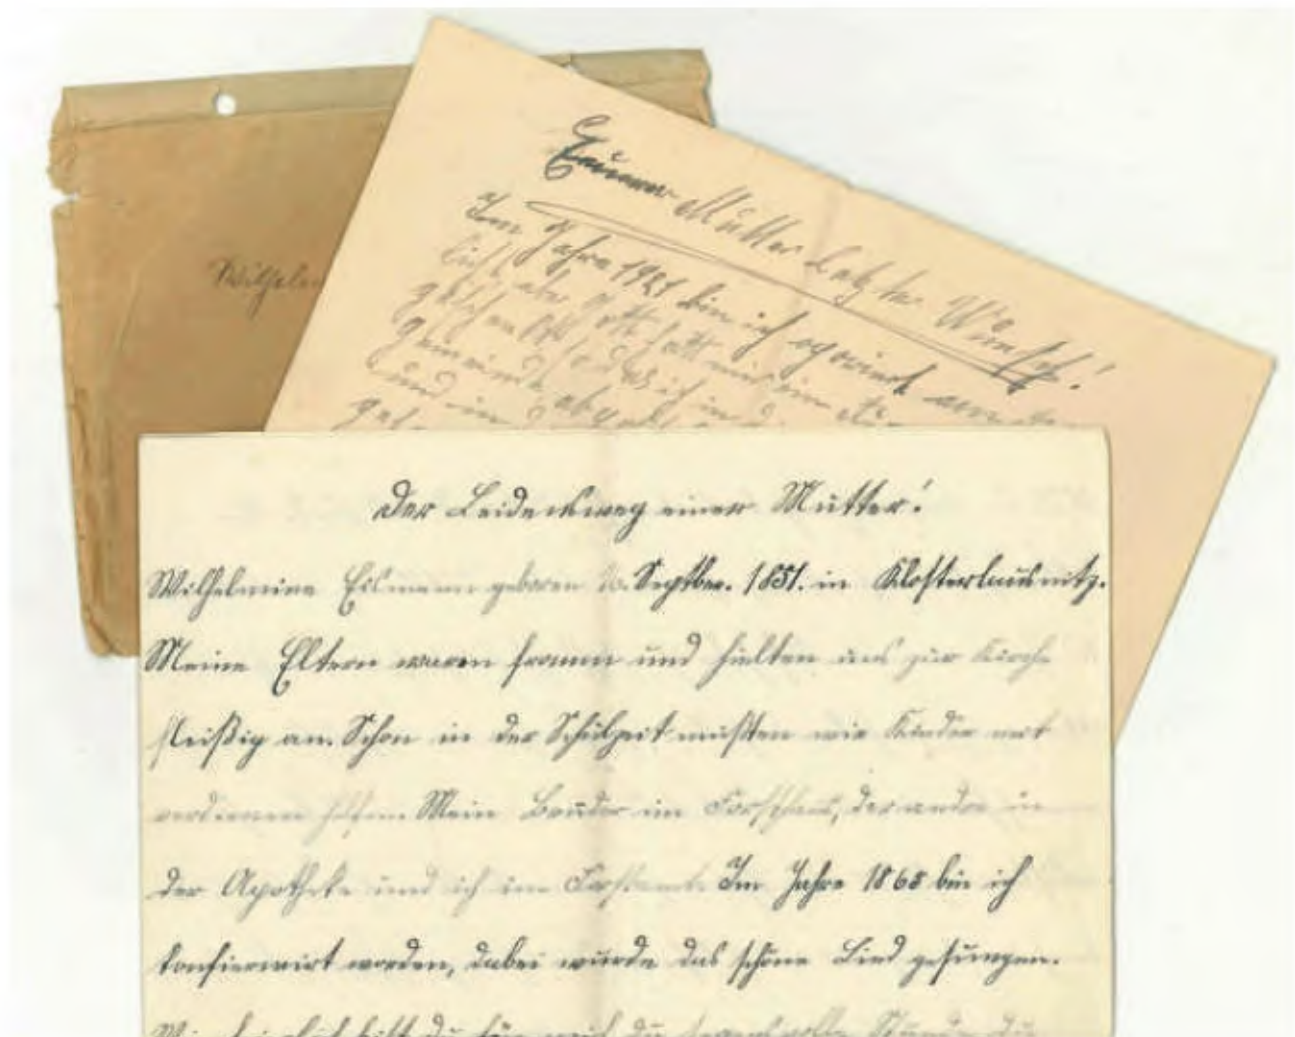 Wilhelm
Mutter letzter Wunsch!
Im Jahre 1921 bin ich operiert
aber Gott hat mir ein
ich in
und in
Der Leidensweg einer Mutter!
Wilhelmine Eismann geboren 10. Septber. 1851. in Klosterlausnitz.
Meine Eltern waren fromm und hielten uns zur Kirche
fleißig an. Schon in der Schulzeit mußten wir Kinder mit
verdienen helfen. Mein Bruder im Forsthaus, der andre in
der Apotheke und ich im Forstamt. Im Jahre 1865 bin ich
konfiermirt worden, dabei wurde das schöne Lied gesungen.
du für mich du Stunde du